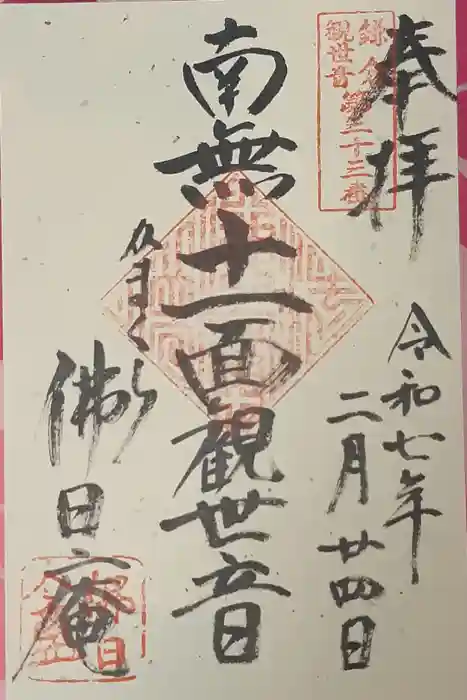 奉拝
鎌倉
観世音
第三十三番
令和七年
二月廿四日
南無十一面観世音
かまくら
佛日庵